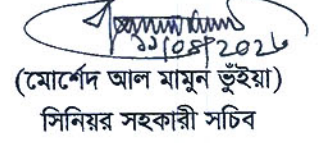 ১১/০৪/২০২৬
(মোর্শেদ আল মামুন ভূঁইয়া)
সিনিয়র সহকারী সচিব